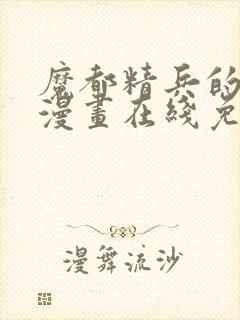 魔都精兵的
漫畫在綫免
漫舞流沙